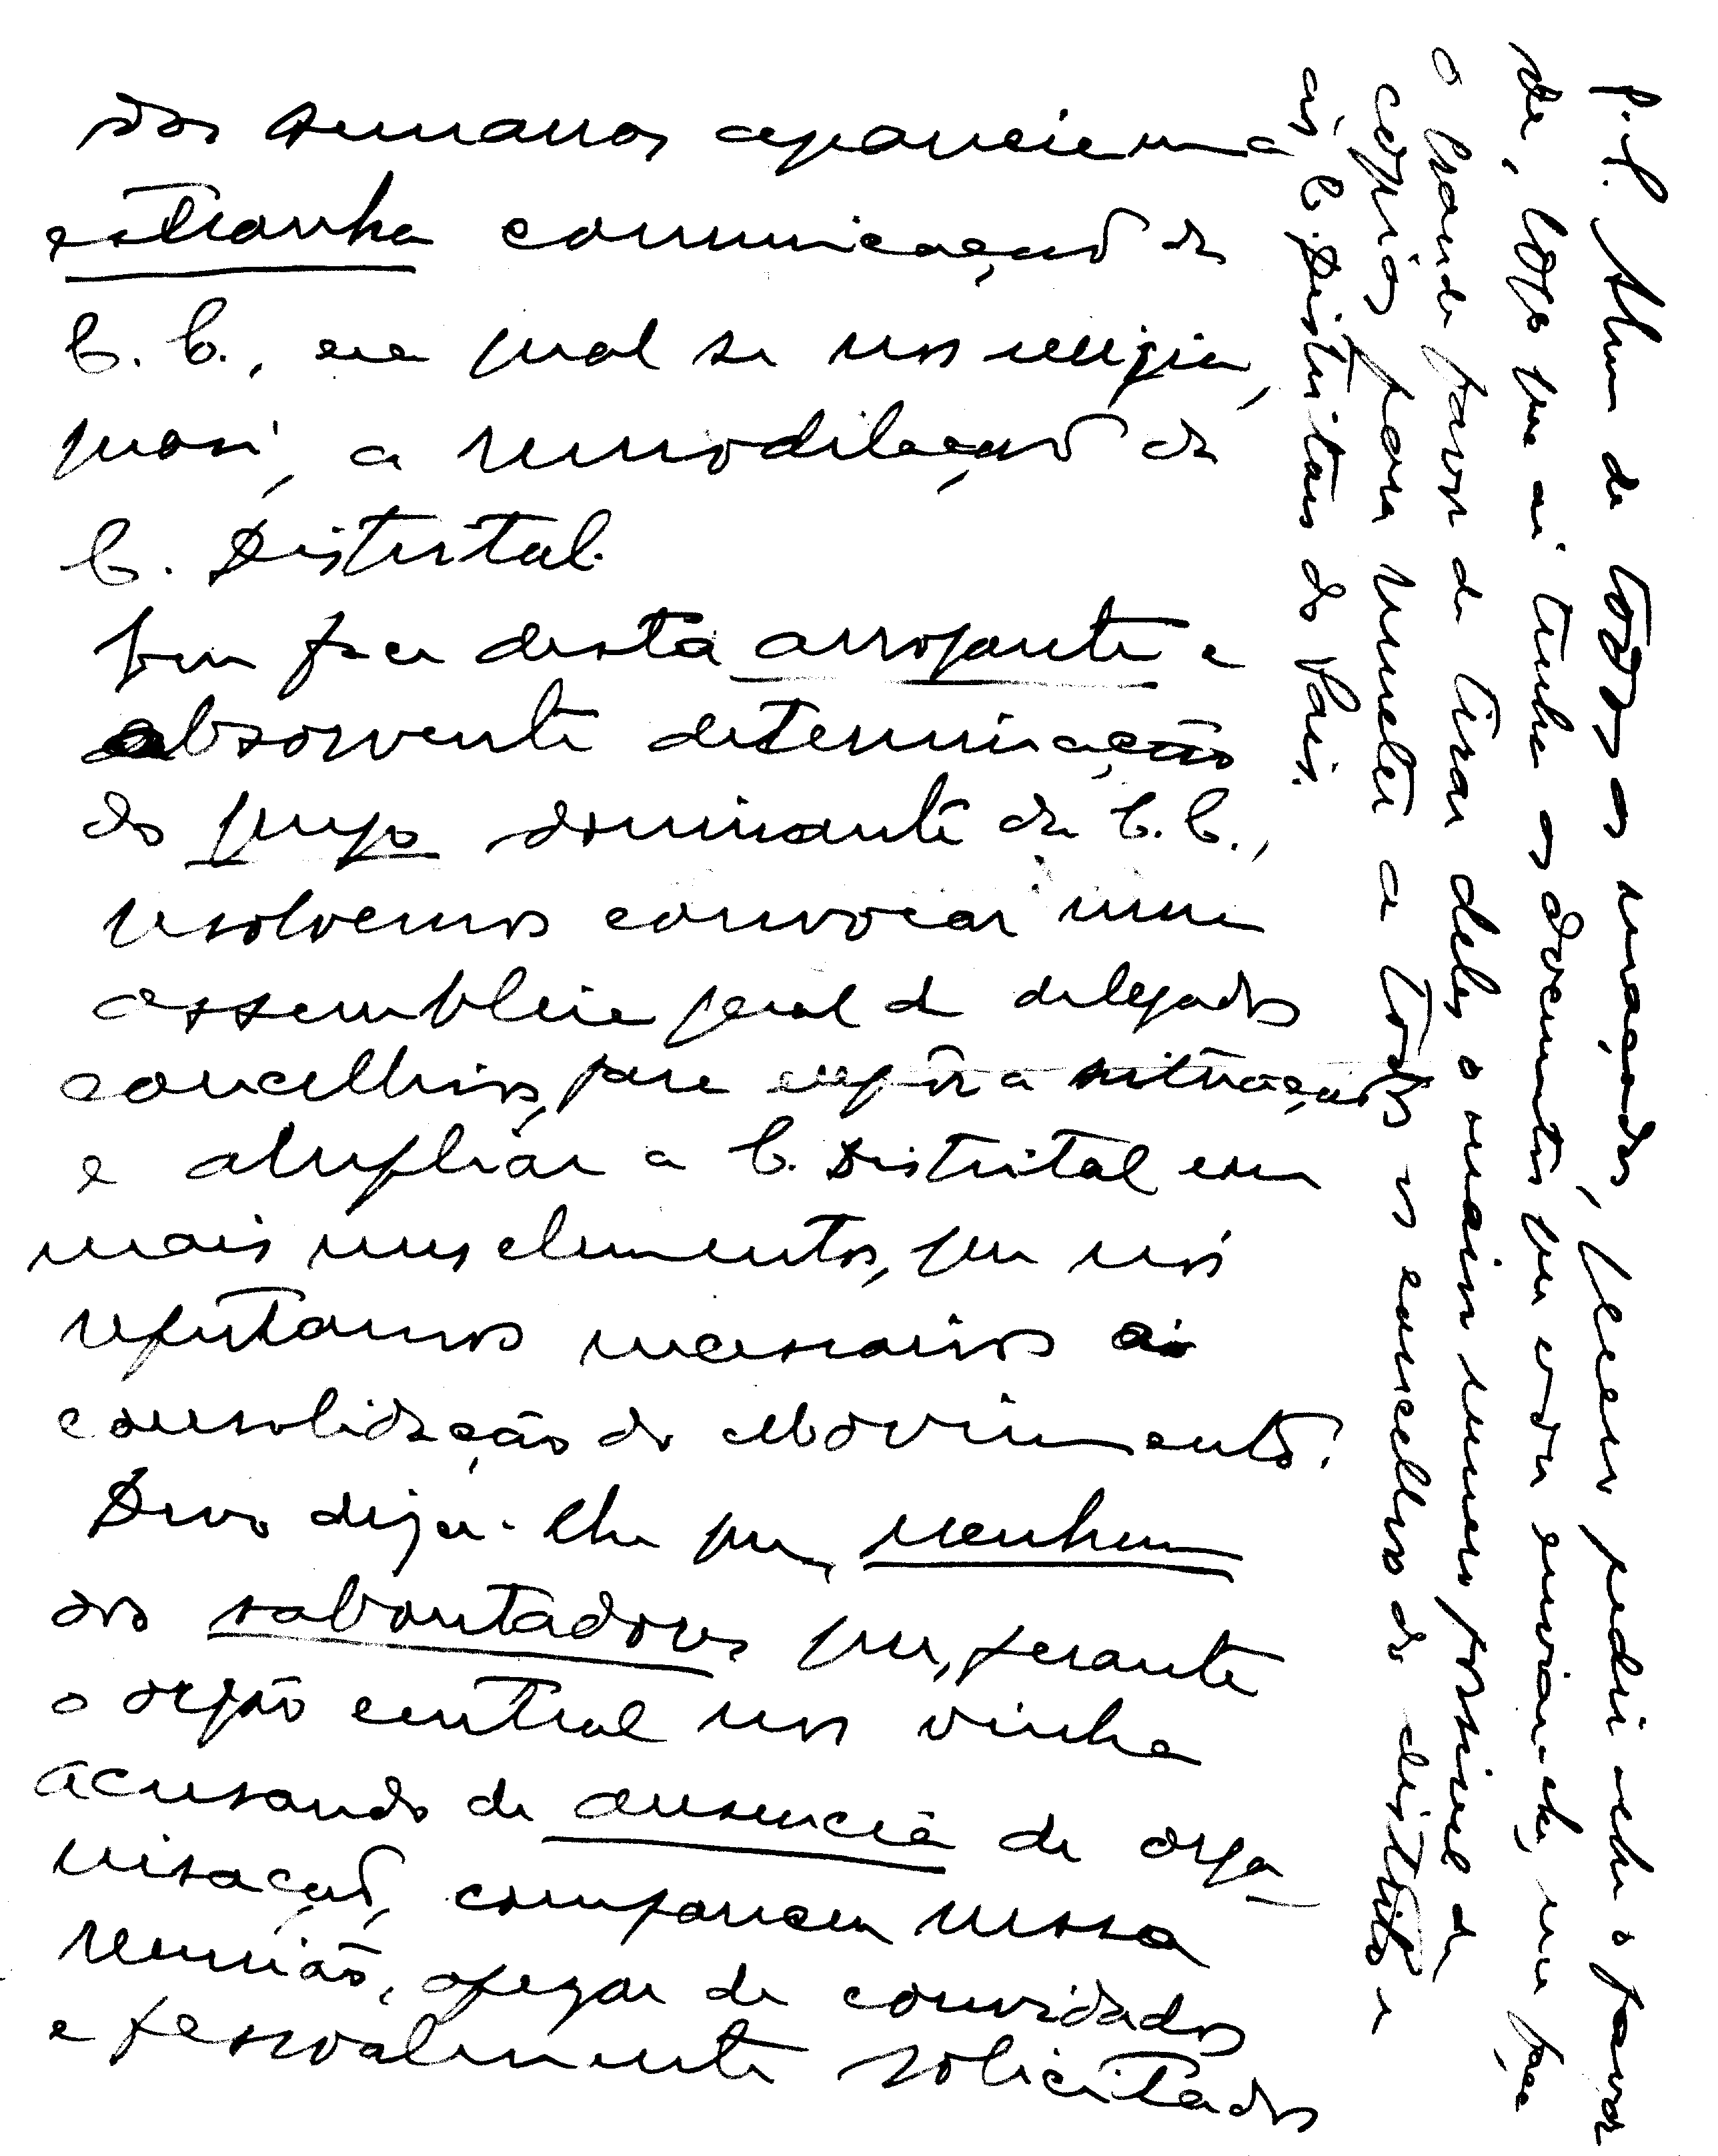 das semanas aparecia uma
estranha comunicação da
C. C., na qual se nos exigia,
quasi, a remodelação da
C. Distrital.
Em face desta arrogante e
absorvente determinação
do grupo dominante da C. C.,
resolvemos convocar uma
assembleia geral de delegados
concelhios, para expôr a situação
e ampliar a C. Distrital com
mais uns elementos, que nós
reputamos necessarios á
consolidação do Movimento.
Devo dizer-lhe que, nenhum
dos sabontadores que, perante
o orgão central nos vinha
acusando de ausencia de orga-
nisação, compareceu nessa
reunião, apezar de convidados
e pessoalmente solicitados
P.S. Alem de todas as maçadas, quero pedir-lhe o favor
de, logo que ai tenha os documentos que vou enviar-lhe, me faça
o grande favor de tirar deles o maior numero possivel de
copias para remeter a todos os concelhos do distrito e
ás C. Distritais do Pais.